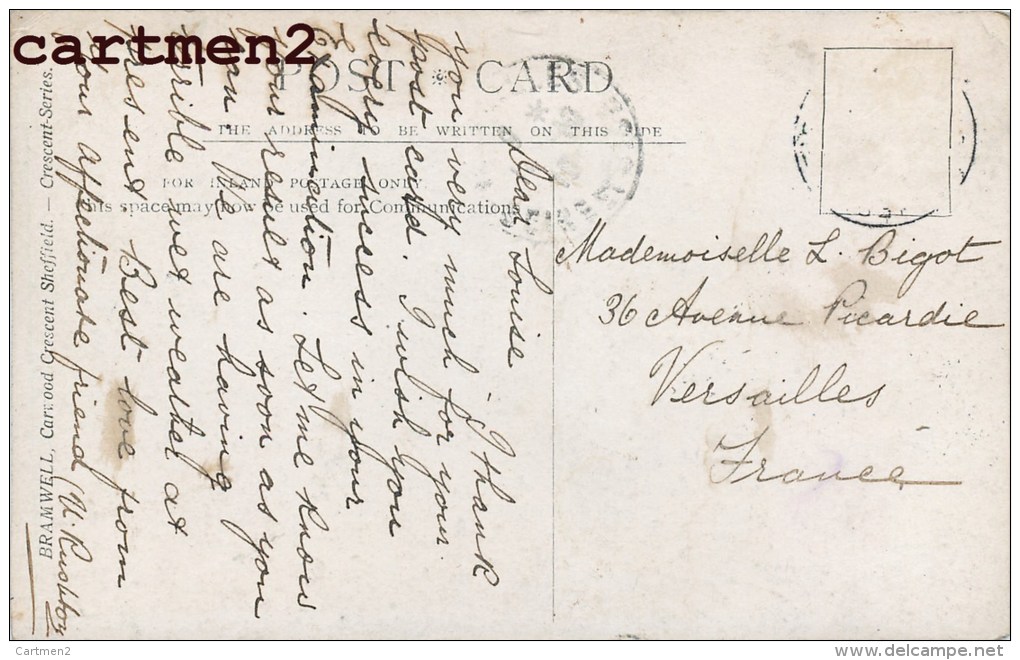 cartmen2
POST CARD
THE ADDRESS TO BE WRITTEN ON THIS SIDE
FOR INLAND POSTAGE ONLY.
This space may now be used for Communications.
BRAMWELL, Carwood Crescent Sheffield. — Crescent-Series.
Dear Louise. I thank
you very much for your
post card. I wish you
every success in your
Examination. Let me know
your result as soon as you
can. We are having
terrible wet weather at
present. Best love from
your affectionate friend
Mademoiselle L. Bigot
36 Avenue Picardie
Versailles
France
Cartmen2
delcampe.net